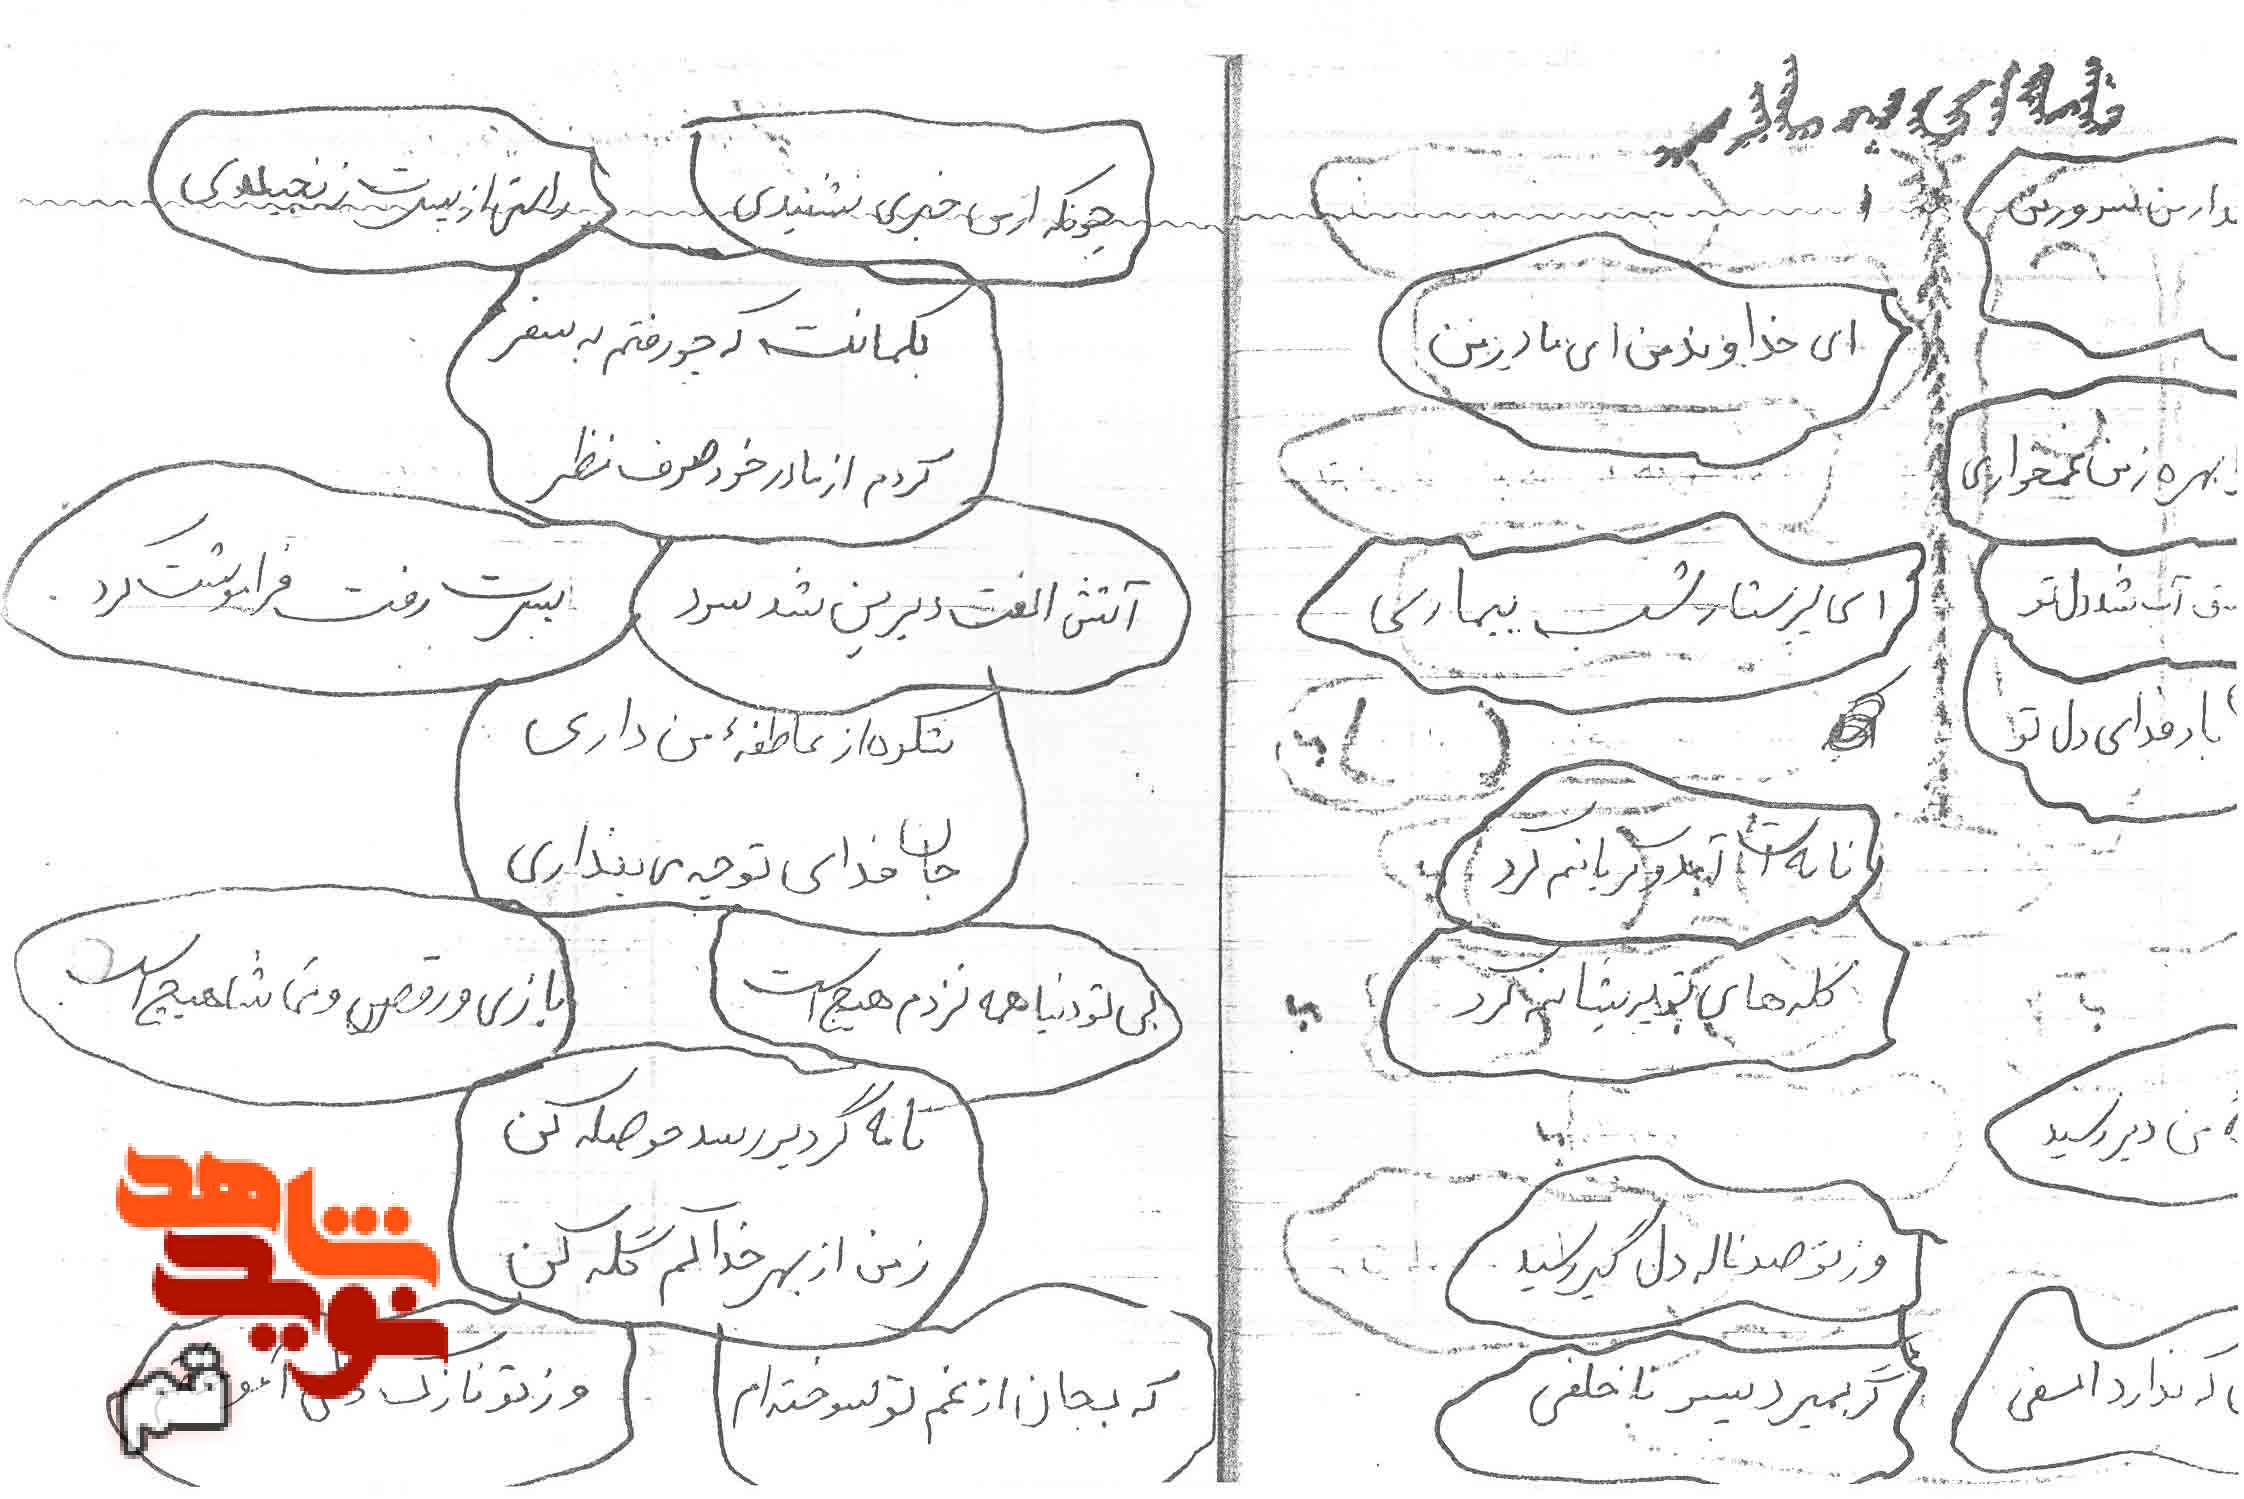 نامه‌ای به مادر
ای خداوند من ای مادر من
ای پرستار شب بیماری
بهره زمن غمخواری
آب شد دل تو
باد فدای دل تو
نامه‌ات آمد و گریانم کرد
گله‌های تو پریشانم کرد
من دیر رسید
وز تو صد ناله دل گیر رسید
که ندارد اسفی
گر بمیرد پسر ناخلفی
چونکه از من خبری نشنیدی
راستی از پسرت رنجیدی
بگمانت که چو رفتم به سفر
کردم از مادر خود صرف نظر
آتش الفت دیرین شد سرد
پسرت رفت فراموشت کرد
شکوه از عاطفهٔ من داری
جان فدای تو چه می پنداری
بی تو دنیا همه نزدم هیچ است
بازی و رقص و تماشا هیچ است
نامه گر دیر رسد حوصله کن
زمن از بهر خدا کم گله کن
که بجان از غم تو سوخته‌ام
وز تو نازک دلی
شاهد
نوید